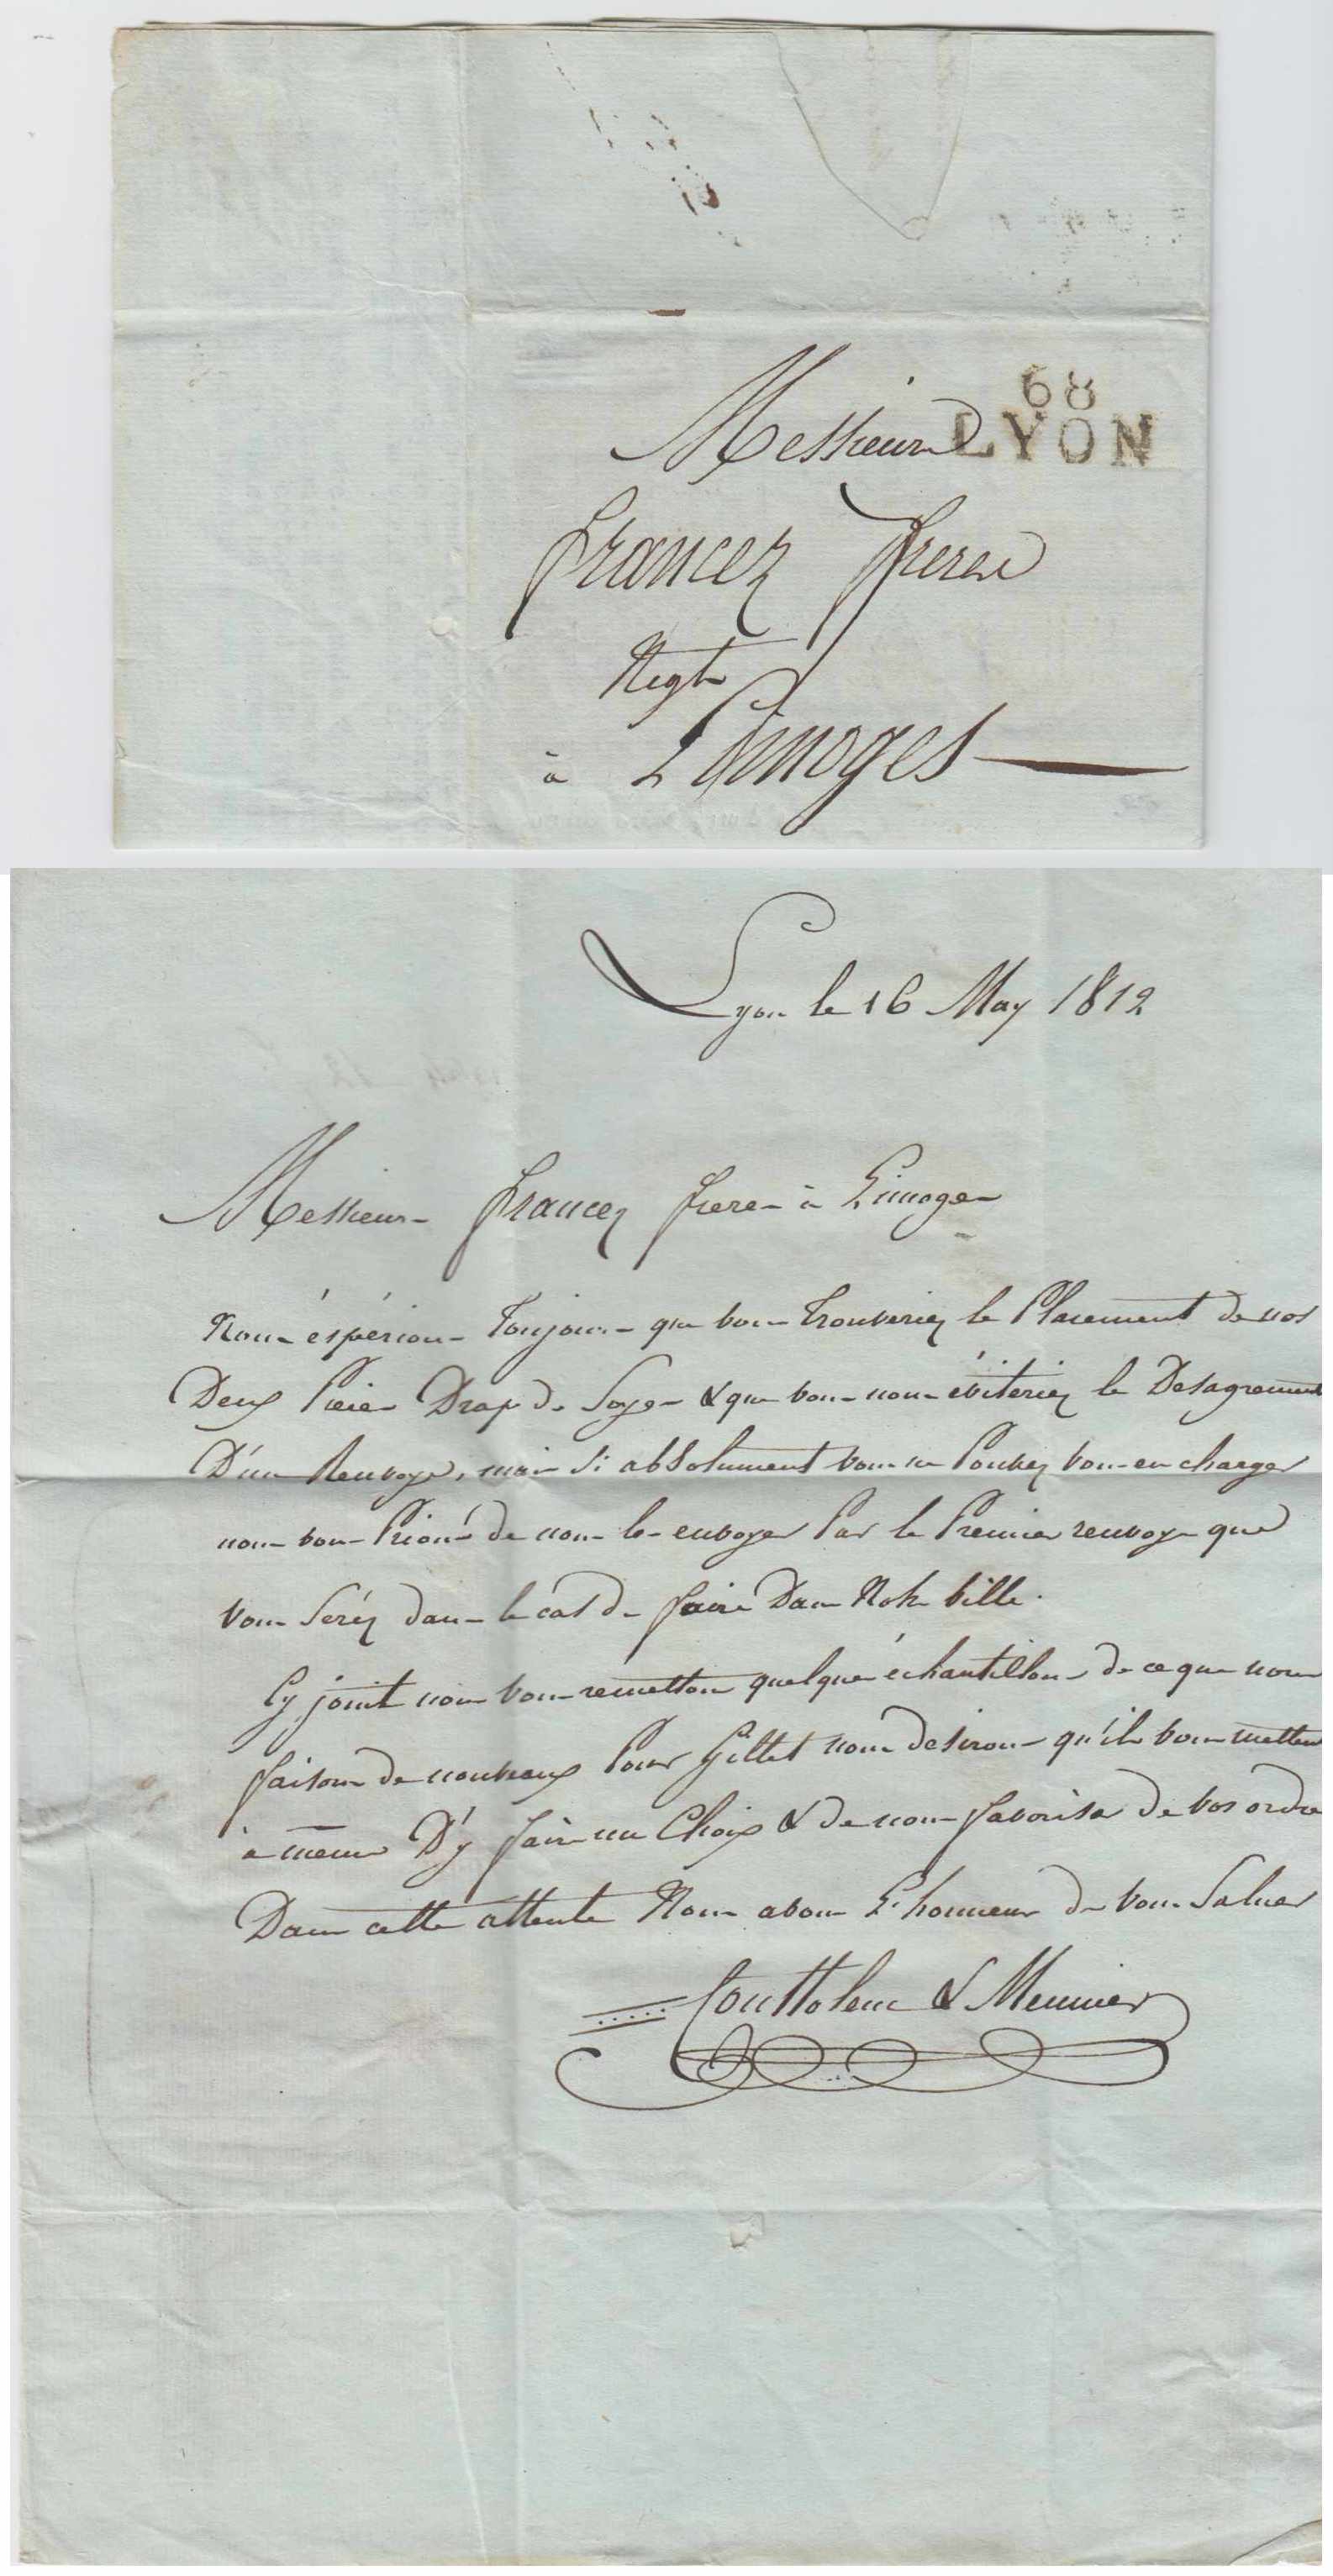 68
LYON
Messieurs
francez freres
Negts
à Limoges
Lyon le 16 May 1812
Messieurs francez freres à Limoges
Nous éspérions Toujours que vous Trouveriez le Placement de nos
Deux Pieces Drap de Soye & que vous nous éviteriez le Desagrement
D'un Renvoye, mais Si absolument vous ne Pouvez vous en charger
nous vous Prions de nous les envoyer Par le Premier renvoye que
vous Seréz dans le cas de faire Dans Notre ville.
Cy joint nous vous remettons quelques échantillons de ce que nous
faisons de nouveaux Pour Gillet nous desirons qu'ils vous mettent
à meme D'y faire un Choix & de nous favoriser de vos ordres
Dans cette attente Nous avons L'honneur de vous Saluer
& Meunier